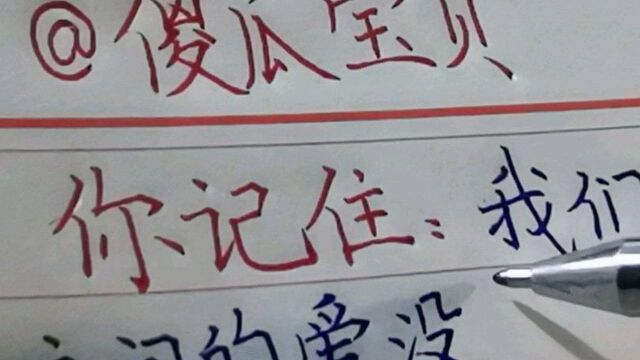 @傻瓜宝贝
你记住：我们
的爱没